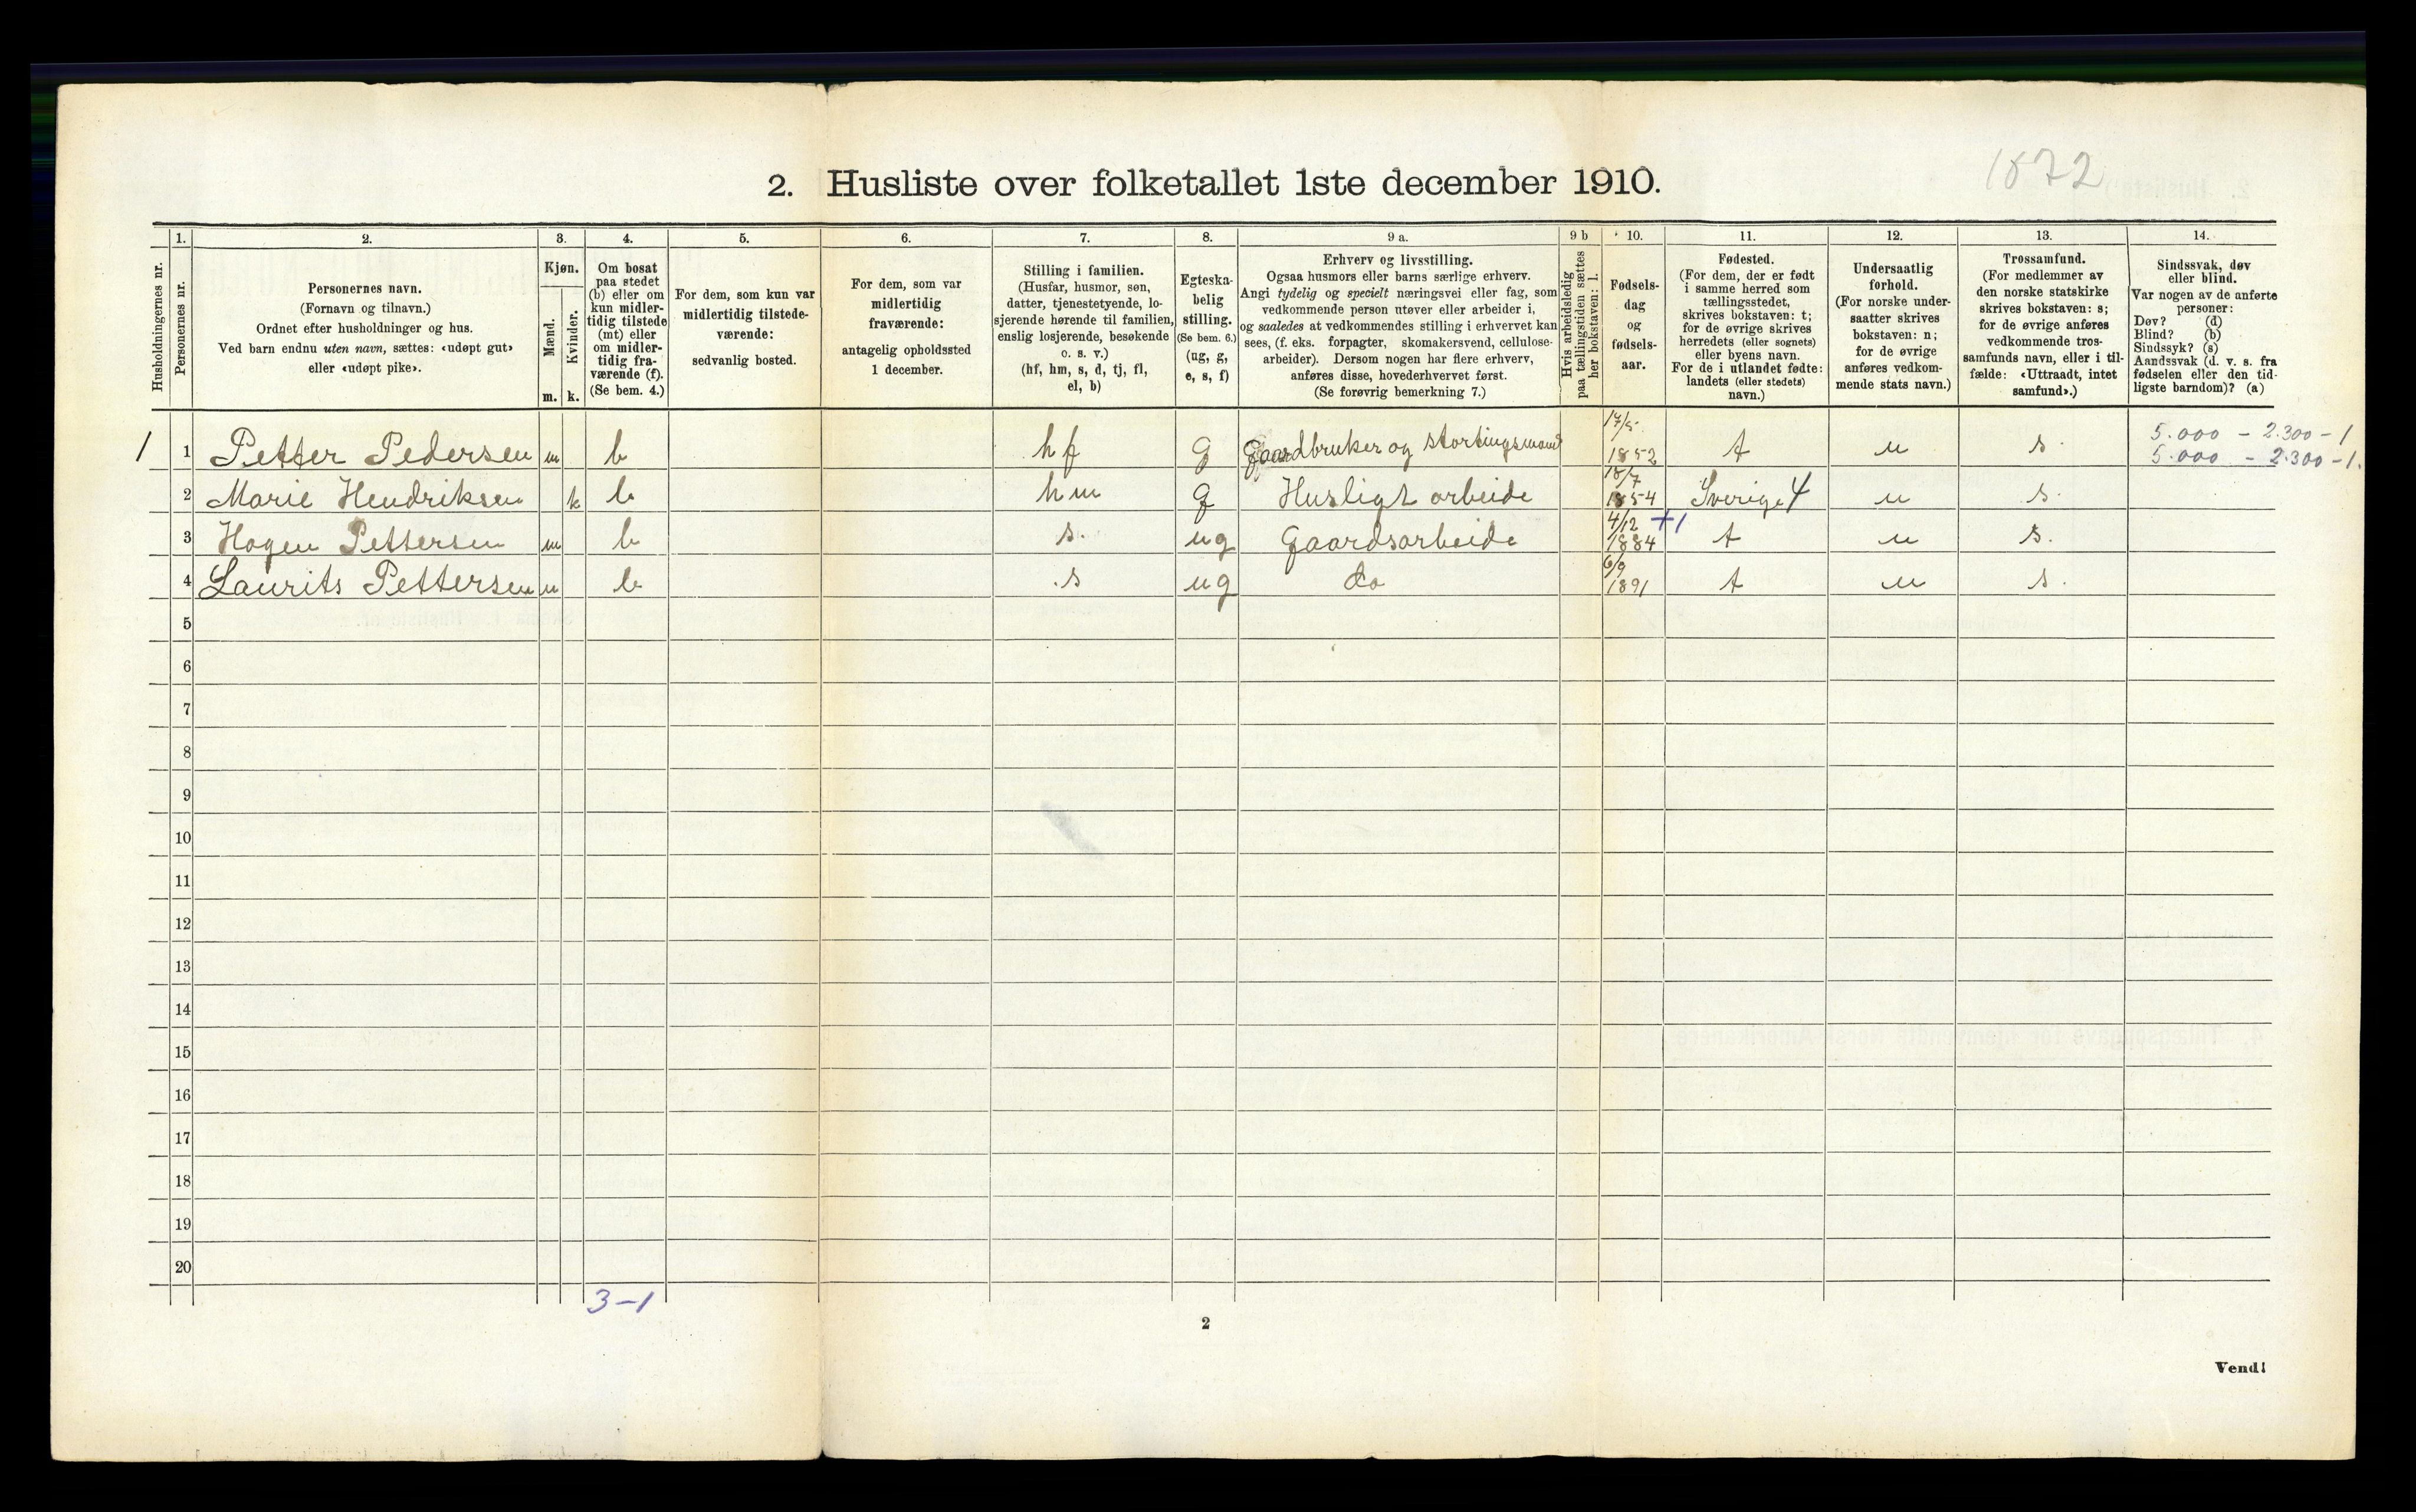 1872
2. Husliste over folketallet 1ste december 1910.
Husholdningernes nr.
1.
Personernes nr.
2.
Personernes navn.
(Fornavn og tilnavn.)
Ordnet efter husholdninger og hus.
Ved barn endnu uten navn, sættes: «udøpt gut»
eller «udøpt pike».
3.
Kjøn.
Mænd.
Kvinder.
m. k.
4.
Om bosat
paa stedet
(b) eller om
kun midler-
tidig tilstede
(mt) eller
om midler-
tidig fra-
værende (f).
(Se bem. 4.)
5.
For dem, som kun var
midlertidig tilstede-
værende:
sedvanlig bosted.
6.
For dem, som var
midlertidig
fraværende:
antagelig opholdssted
1 december.
7.
Stilling i familien.
(Husfar, husmor, søn,
datter, tjenestetyende, lo-
sjerende hørende til familien,
enslig losjerende, besøkende
o. s. v.)
(hf, hm, s, d, tj, fl,
el, b)
8.
Egteska-
belig
stilling.
(Se bem. 6.)
(ug, g,
e, s, f)
9 a.
Erhverv og livsstilling.
Ogsaa husmors eller barns særlige erhverv.
Angi tydelig og specielt næringsvei eller fag, som
vedkommende person utøver eller arbeider i,
og saaledes at vedkommendes stilling i erhvervet kan
sees, (f. eks. forpagter, skomakersvend, cellulose-
arbeider). Dersom nogen har flere erhverv,
anføres disse, hovederhvervet først.
(Se forøvrig bemerkning 7.)
9 b
Hvis arbeidsledig
paa tællingstiden sættes
her bokstaven: l.
10.
Fødsels-
dag
og
fødsels-
aar.
11.
Fødested.
(For dem, der er født
i samme herred som
tællingsstedet,
skrives bokstaven: t;
for de øvrige skrives
herredets (eller sognets)
eller byens navn.
For de i utlandet fødte:
landets (eller stedets)
navn.)
12.
Undersaatlig
forhold.
(For norske under-
saatter skrives
bokstaven: n;
for de øvrige
anføres vedkom-
mende stats navn.)
13.
Trossamfund.
(For medlemmer av
den norske statskirke
skrives bokstaven: s;
for de øvrige anføres
vedkommende tros-
samfunds navn, eller i til-
fælde: «Uttraadt, intet
samfund».)
14.
Sindssvak, døv
eller blind.
Var nogen av de anførte
personer:
Døv? (d)
Blind? (b)
Sindssyk? (s)
Aandssvak (d. v. s. fra
fødselen eller den tid-
ligste barndom)? (a)
1 1 Petter Pedersen m b hf g Gaardbruker og stortingsmand 17/5 1852 t n s. 5.000 - 2.300 - 1
5.000 - 2.300 - 1.
2 Marie Hendriksen k b hm g Husligt arbeide 18/7 1854 Sverige 4 n s.
3 Hagen Pettersen m b s. ug Gaardsarbeide 4/12 1884 +1 t n s.
4 Laurits Pettersen m b .s ug do 6/9 1891 t n s.
5
6
7
8
9
10
11
12
13
14
15
16
17
18
19
20
3-1
2
Vend!